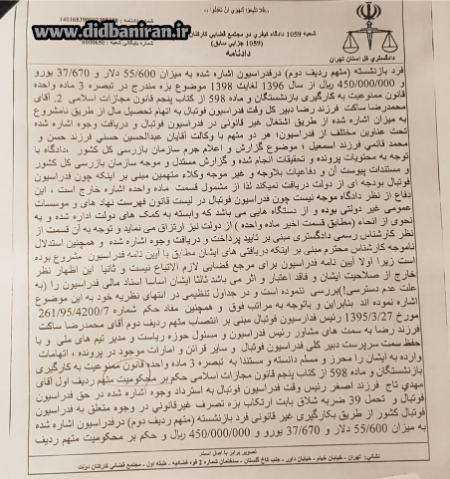 www.didbaniran.ir
«فلا تتبعوا الهوی ان تعدلوا»
شعبه 1059 دادگاه کیفری دو مجتمع قضایی کارکنان
(1059 جزایی سابق)
دادنامه
دادگستری کل استان تهران
فرد بازنشسته (متهم ردیف دوم) درفدراسیون اشاره شده به میزان 55/600 دلار و 37/670 یورو و
450/000/000 ریال از سال 1396 لغایت 1398 موضوع بزه مندرج در تبصره 3 ماده واحده
قانون ممنوعیت به کارگیری بازنشستگان و ماده 598 از کتاب پنجم قانون مجازات اسلامی 2. آقای
محمدرضا ساکت فرزند رضا دبیر کل وقت فدراسیون فوتبال به اتهام تحصیل مال از طریق نامشروع
به میزان اشاره شده از طریق اشتغال غیر قانونی در فدراسیون فوتبال و دریافت وجوه اشاره شده
تحت عناوین مختلف از فدراسیون؛ هر دو متهم با وکالت آقایان عبدالحسین حسنی فرزند حسن و
محمد قائمی فرزند اسمعیل ؛ موضوع گزارش و اعلام جرم سازمان بازرسی کل کشور ،دادگاه با
توجه به محتویات پرونده و تحقیقات انجام شده و گزارش مستدل و موجه سازمان بازرسی کل کشور
و مستندات پیوست آن و دفاعیات بلاوجه و غیر موجه وکلاء متهمین مبنی بر اینکه چون فدراسیون
فوتبال بودجه ای از دولت دریافت نمیکند لذا از مشمول قسمت ماده واحده اشاره خارج است ، این
دفاع از نظر دادگاه موجه نیست چون فدراسیون فوتبال در لیست قانون فهرست نهاد های و موسسات
عمومی غیر دولتی بوده و از دستگاه هایی می باشد که وابسته به کمک های دولت اداره شده و به
نحوی از انحاء (مطابق قسمت اخیر ماده واحده ) از دولت نیز ارتزاق می نماید و توجه به آن قسمت از
نظر کارشناس رسمی دادگستری مبنی بر تایید پرداخت و دریافت وجوه اشاره شده و همچنین استدلال
ناموجه کارشناس محترم مبنی بر اینکه دریافتی های ایشان مطابق با آیین نامه فدراسیون مشروع بوده
است زیرا اولا آیین نامه فدراسیون برای مرجع قضایی لازم الاتباع نیست و ثانیا این اظهار نظر
خارج از صلاحیت ایشان و فاقد اعتبار و اثر می باشد ثالثا ایشان اساسا اسناد مالی فدراسیون را (به
علت عدم دسترسی!)بررسی ننموده است و در جداول تنظیمی در انتهای نظریه خود به این موضوع
اشاره نموده اند بنابراین و باتوجه به مراتب فوق و همچنین مفاد حکم شماره 261/95/4200/7
مورخ 1395/3/27 رئیس فدارسیون فوتبال مبنی بر انتصاب متهم ردیف دوم آقای محمدرضا ساکت
فرزند رضا به سمت های مشاور رئیس فدراسیون و مسئول حوزه ریاست و مدیر تیم های ملی و با
حفظ سمت سرپرست دبیر کلی فدراسیون فوتبال و سایر قرائن و امارات موجود در پرونده ، اتهامات
وارده به ایشان را محرز و مسلم دانسته و مستندا به تبصره 3 ماده واحده قانون ممنوعیت به کارگیری
بازنشستگان و ماده 598 از کتاب پنجم قانون مجازات اسلامی حکم بر محکومیت متهم ردیف اول آقای
مهدی تاج فرزند اصغر رئیس وقت فدراسیون فوتبال به استرداد وجوه اشاره شده در حق فدراسیون
فوتبال و تحمل 39 ضربه شلاق بابت ارتکاب بزه تصرف غیرقانونی در وجوه متعلق به فدراسیون
فوتبال کشور از طریق بکارگیری غیر قانونی فرد بازنشسته (متهم ردیف دوم) درفدراسیون اشاره شده
به میزان 55/600 دلار و 37/670 یورو و 450/000/000 ریال و حکم بر محکومیت متهم ردیف
تصویر برابر با اصل است.
نشانی: تهران- خیابان خیام- خیابان داور - جنب کاخ گلستان - ساختمان شماره 2 قوه قضاییه - طبقه اول - مجتمع قضائی کارکنان دولت